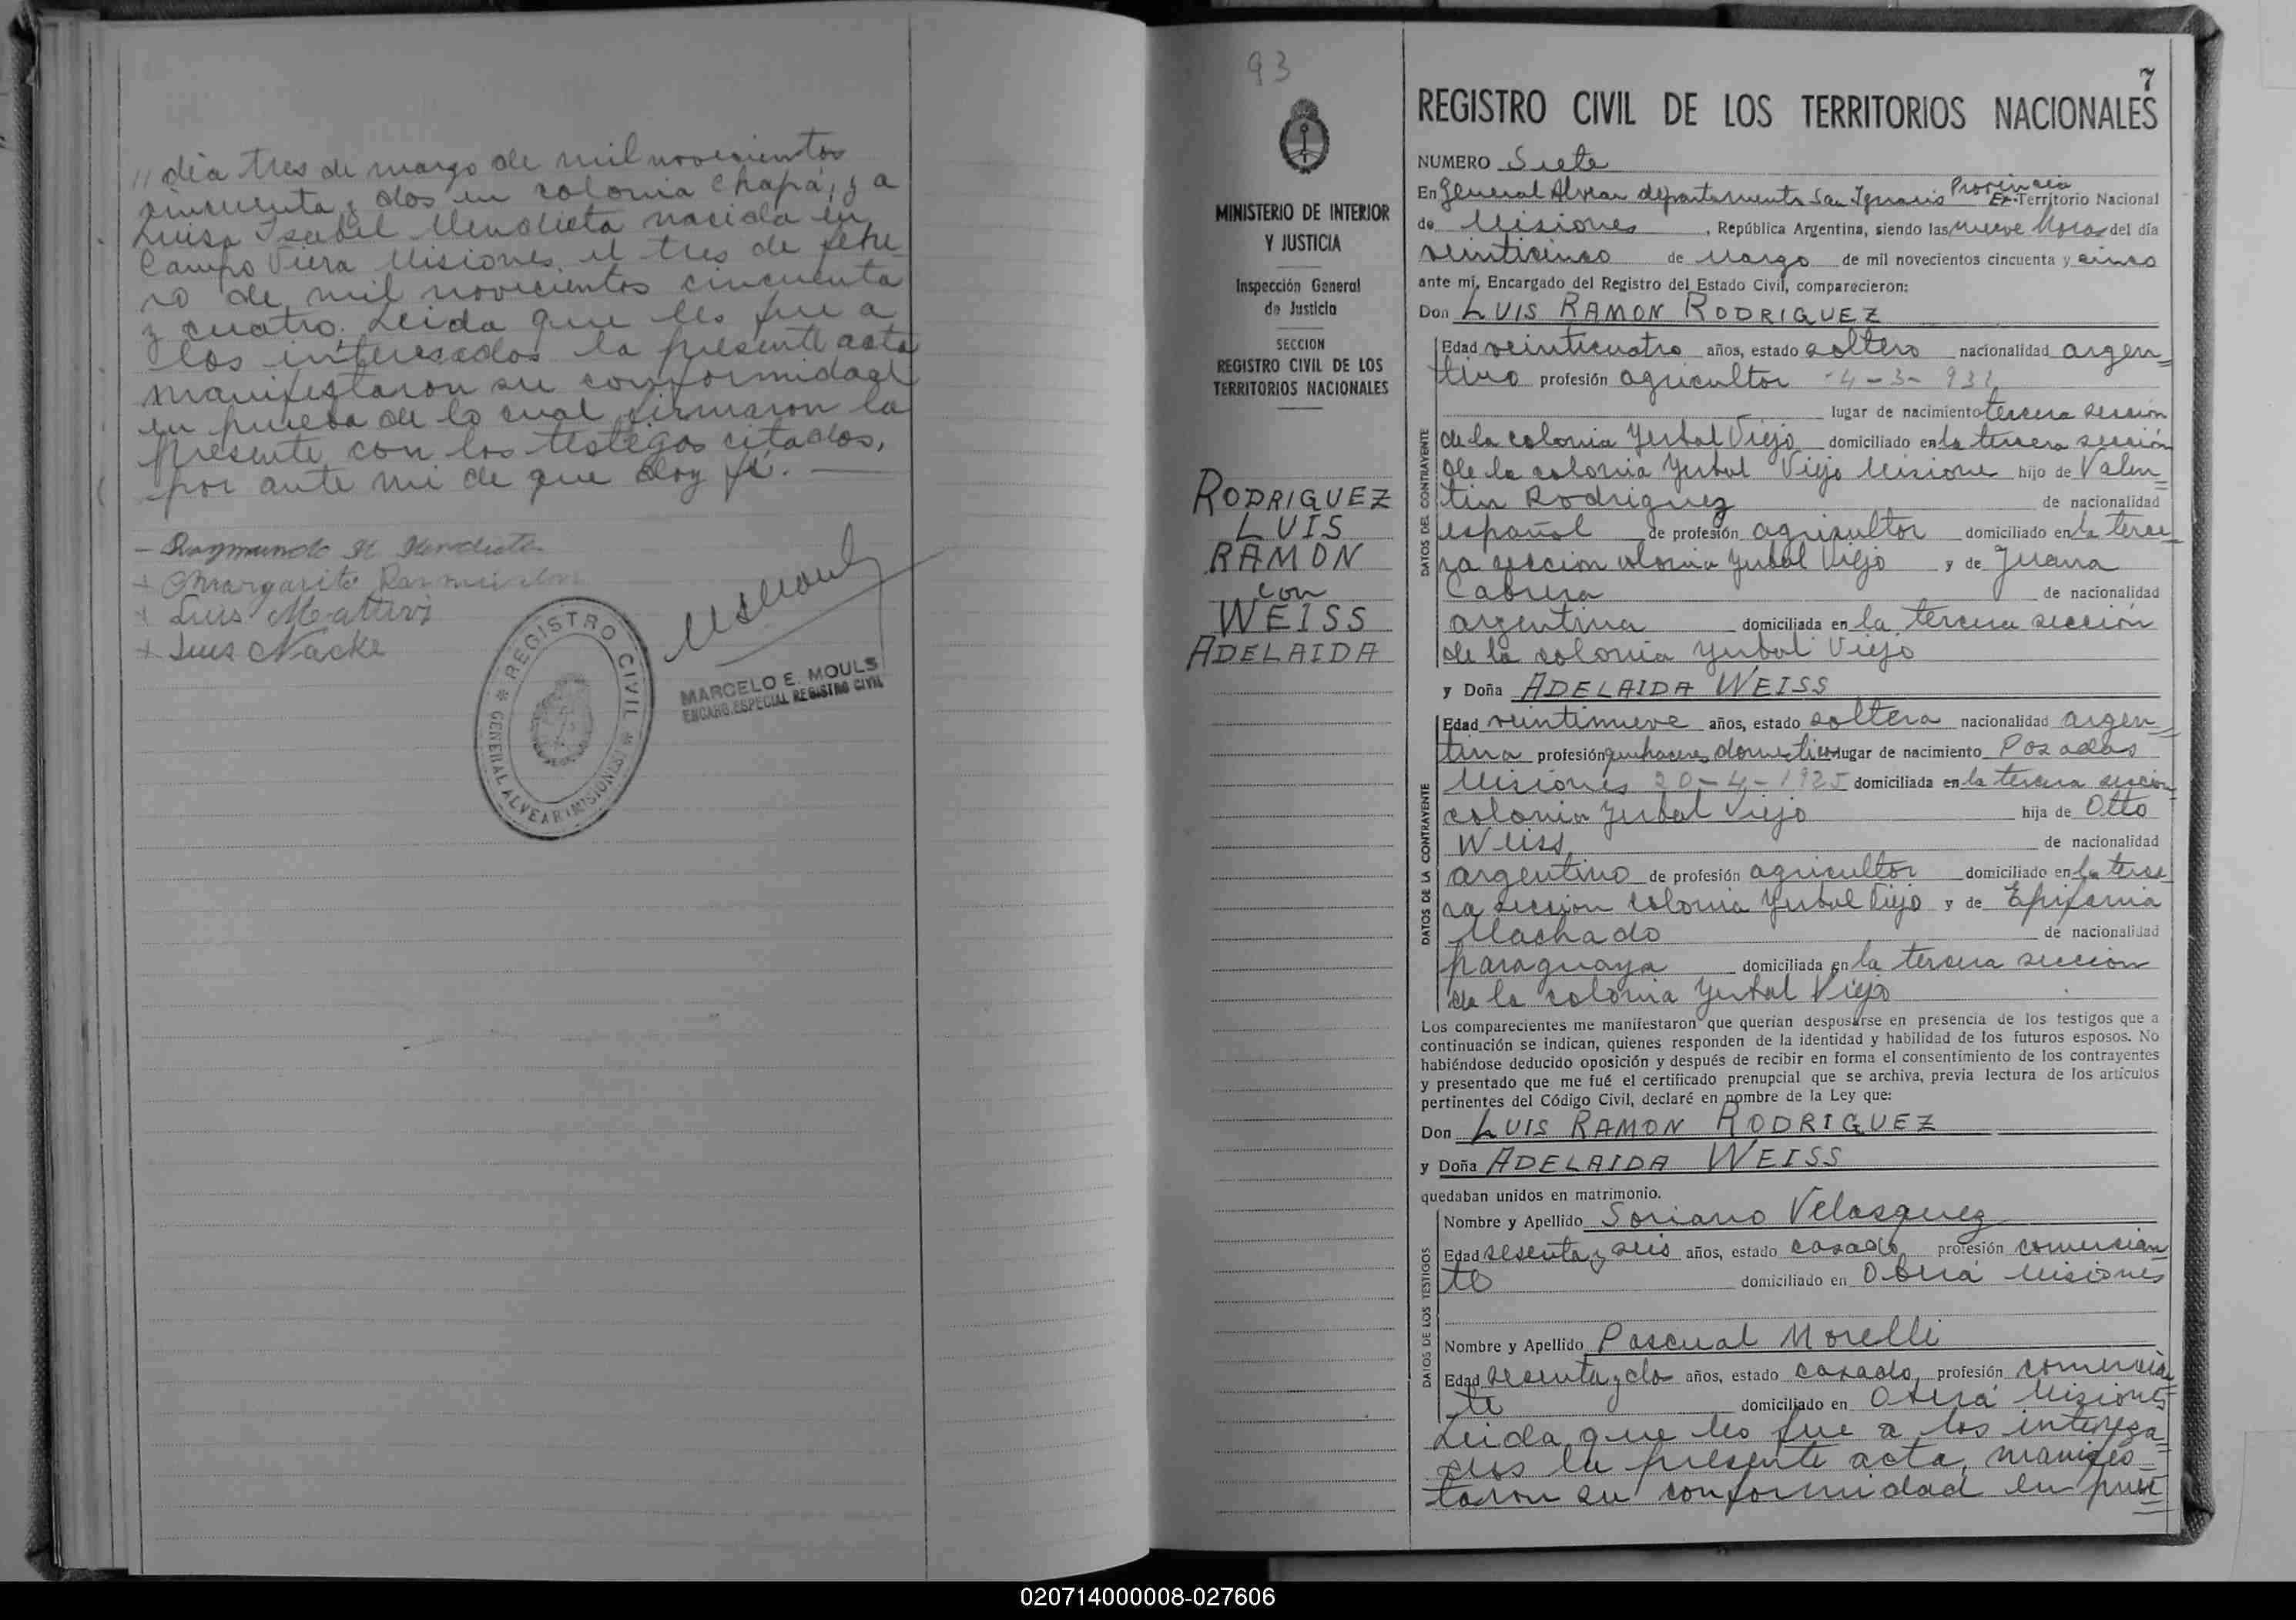 // dia tres de marzo de mil novecientos
cincuenta y dos en colonia Chapá, y a
Luisa Isabel Mendieta nacida en
Campo Viera Misiones, el tres de febre
ro de mil novecientos cincuenta
y cuatro. Leida que les fue a
los interesados la presente acta
manifestaron su conformidad
en prueba de lo cual firmaron la
presente con los testigos citados,
por ante mi de que doy fé.
Raymundo Mendieta
Margarita
Luis
Luis Nacke
REGISTRO CIVIL
GENERAL ALVEAR (MISIONES)
MARCELO E. MOULS
ENCARG. ESPECIAL REGISTRO CIVIL
93
MINISTERIO DE INTERIOR
Y JUSTICIA
Inspección General
de Justicia
SECCION
REGISTRO CIVIL DE LOS
TERRITORIOS NACIONALES
RODRIGUEZ
LUIS
RAMON
con
WEISS
ADELAIDA
7
REGISTRO CIVIL DE LOS TERRITORIOS NACIONALES
NUMERO Siete
En General Alvear departamento San Ignacio Provincia Ex-Territorio Nacional
de Misiones, República Argentina, siendo las nueve horas del día
veinticinco de Marzo de mil novecientos cincuenta y cinco
ante mí, Encargado del Registro del Estado Civil, comparecieron:
Don LUIS RAMON RODRIGUEZ
DATOS DEL CONTRAYENTE
Edad veinticuatro años, estado soltero nacionalidad argen=
tino profesión agricultor -4-3-931
lugar de nacimiento tercera sección
de la colonia Yerbal Viejo domiciliado en la tercera sección
de la colonia Yerbal Viejo Misiones hijo de Valen=
tin Rodriguez de nacionalidad
español de profesión agricultor domiciliado en la terce=
ra sección colonia Yerbal Viejo y de Juana
Cabrera de nacionalidad
argentina domiciliada en la tercera sección
de la colonia Yerbal Viejo
y Doña ADELAIDA WEISS
DATOS DE LA CONTRAYENTE
Edad veintinueve años, estado soltera nacionalidad argen=
tina profesión quehaceres domesticos lugar de nacimiento Posadas
Misiones 20-4-1925 domiciliada en la tercera sección
colonia Yerbal Viejo hija de Otto
Weiss de nacionalidad
argentino de profesión agricultor domiciliado en la terce
ra sección colonia Yerbal Viejo y de Epifania
Machado de nacionalidad
paraguaya domiciliada en la tercera sección
de la colonia Yerbal Viejo
Los comparecientes me manifestaron que querían desposarse en presencia de los testigos que a
continuación se indican, quienes responden de la identidad y habilidad de los futuros esposos. No
habiéndose deducido oposición y después de recibir en forma el consentimiento de los contrayentes
y presentado que me fué el certificado prenupcial que se archiva, previa lectura de los artículos
pertinentes del Código Civil, declaré en nombre de la Ley que:
Don LUIS RAMON RODRIGUEZ
y Doña ADELAIDA WEISS
quedaban unidos en matrimonio.
DATOS DE LOS TESTIGOS
Nombre y Apellido Soriano Velasquez
Edad sesenta y seis años, estado casado profesión comercian=
te domiciliado en Oberá Misiones
Nombre y Apellido Pascual Morelli
Edad sesenta y dos años, estado casado, profesión comercian=
te domiciliado en Oberá Misiones
Leida que les fue a los interesa=
dos la presente acta, manifes=
taron su conformidad en prue=
020714000008-027606